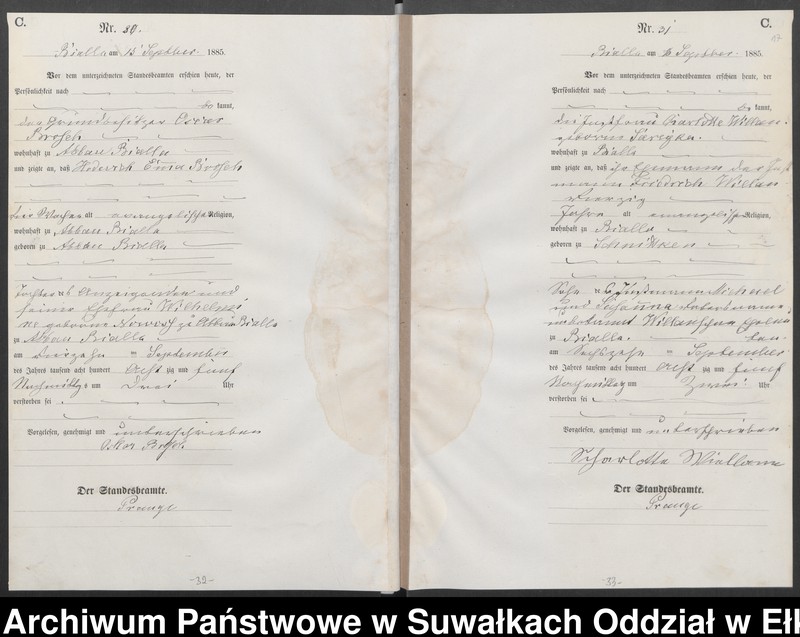 C.
Nr. 30.
Bialla am 15 September 1885.
Vor dem unterzeichneten Standesbeamten erschien heute, der
Persönlichkeit nach
be kannt,
der Grundbesitzer Oscar
Brosch
wohnhaft zu Abbau Bialla
und zeigte an, daß Hederich Emma Brosch
vier Wochen alt evangelischer Religion,
wohnhaft zu Abbau Bialla
geboren zu Abbau Bialla
Tochter des Anzeigenden und
seiner Ehefrau Wilhelmi
ne geborene zu Abbau Bialla
zu Abbau Bialla
am dreizehn ten September
des Jahres tausend acht hundert acht zig und fünf
Nachmittags um Drei Uhr
verstorben sei
Vorgelesen, genehmigt und unterschrieben
Oskar Brosch
Der Standesbeamte.
Prange
-32-
C.
Nr. 31
Bialla am September 1885.
Vor dem unterzeichneten Standesbeamten erschien heute, der
Persönlichkeit nach
be kannt,
die Instfrau Charlotte
geborene
wohnhaft zu Bialla
und zeigte an, daß ihr Ehemann der Inst
mann Friedrich
vierzig
Jahre alt evangelischer Religion,
wohnhaft zu Bialla
geboren zu
Sohn Michael
und
unbekannt
zu Bialla.
am Sechszehn ten September
des Jahres tausend acht hundert acht zig und fünf
Nachmittag um Zwei Uhr
verstorben sei
Vorgelesen, genehmigt und unterschrieben
Scharlotta
Der Standesbeamte.
Prange
-33-
Archiwum Państwowe w Suwałkach Oddział w Ełk